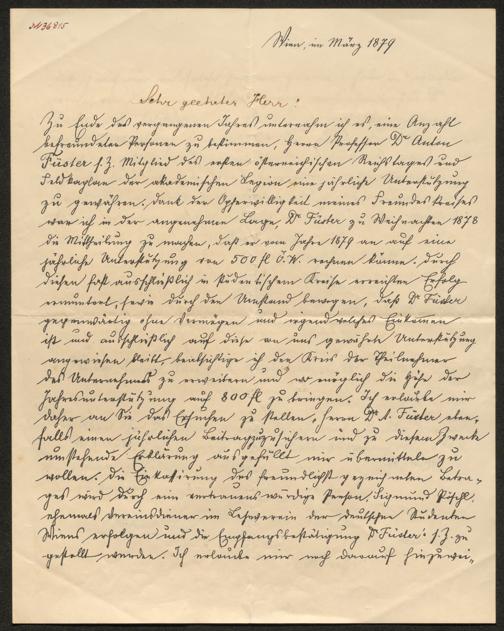 N 36815
Wien, im März 1879
Sehr geehrter Herr!
Zu Ende des vergangenen Jahres unternahm ich es, eine Anzahl
befreundeter Personen zu bestimmen, Herrn Professor Dr Anton
Füster s. Z. Mitglied des ersten österreichischen Reichstages und
Feldkaplan der akademischen Legion eine jährliche Unterstützung
zu gewähren. Dank der Opferwilligkeit meines Freundeskreises
war ich in der angenehmen Lage, Dr Füster zu Weihnachten 1878
die Mittheilung zu machen, daß er vom Jahre 1879 an auf eine
jährliche Unterstützung von 500 fl Ö. W. rechnen könne. Durch
diesen fast ausschließlich in studentischem Kreise erreichten Erfolg
ermuntert, sowie durch den Umstand bewogen, daß Dr Füster
gegenwärtig ohne Vermögen und irgend welches Einkommen
ist und ausschließlich auf diese von uns gewährte Unterstützung
angewiesen bleibt, beabsichtige ich den Kreis der Theilnehmer
des Unternehmens zu erweitern und wo möglich die Höhe der
Jahresunterstützung auf 800 fl zu bringen. Ich erlaube mir
daher an Sie das Ersuchen zu stellen, Herrn Dr A. Füster eben-
falls einen jährlichen Beitrag zuzusichern und zu diesem Zwecke
umstehende Erklärung ausgefüllt mir übermitteln zu
wollen. Die Einkassirung des freundlichst gezeichneten Betra-
ges wird durch eine vertrauenswürdige Person, Sigmund Püschl,
ehemals Vereinsdiener im Leseverein der deutschen Studenten
Wiens erfolgen und die Empfangsbestätigung Dr Füster's s. Z. zu
gestellt werden. Ich erlaube mir noch darauf hinzuwei-